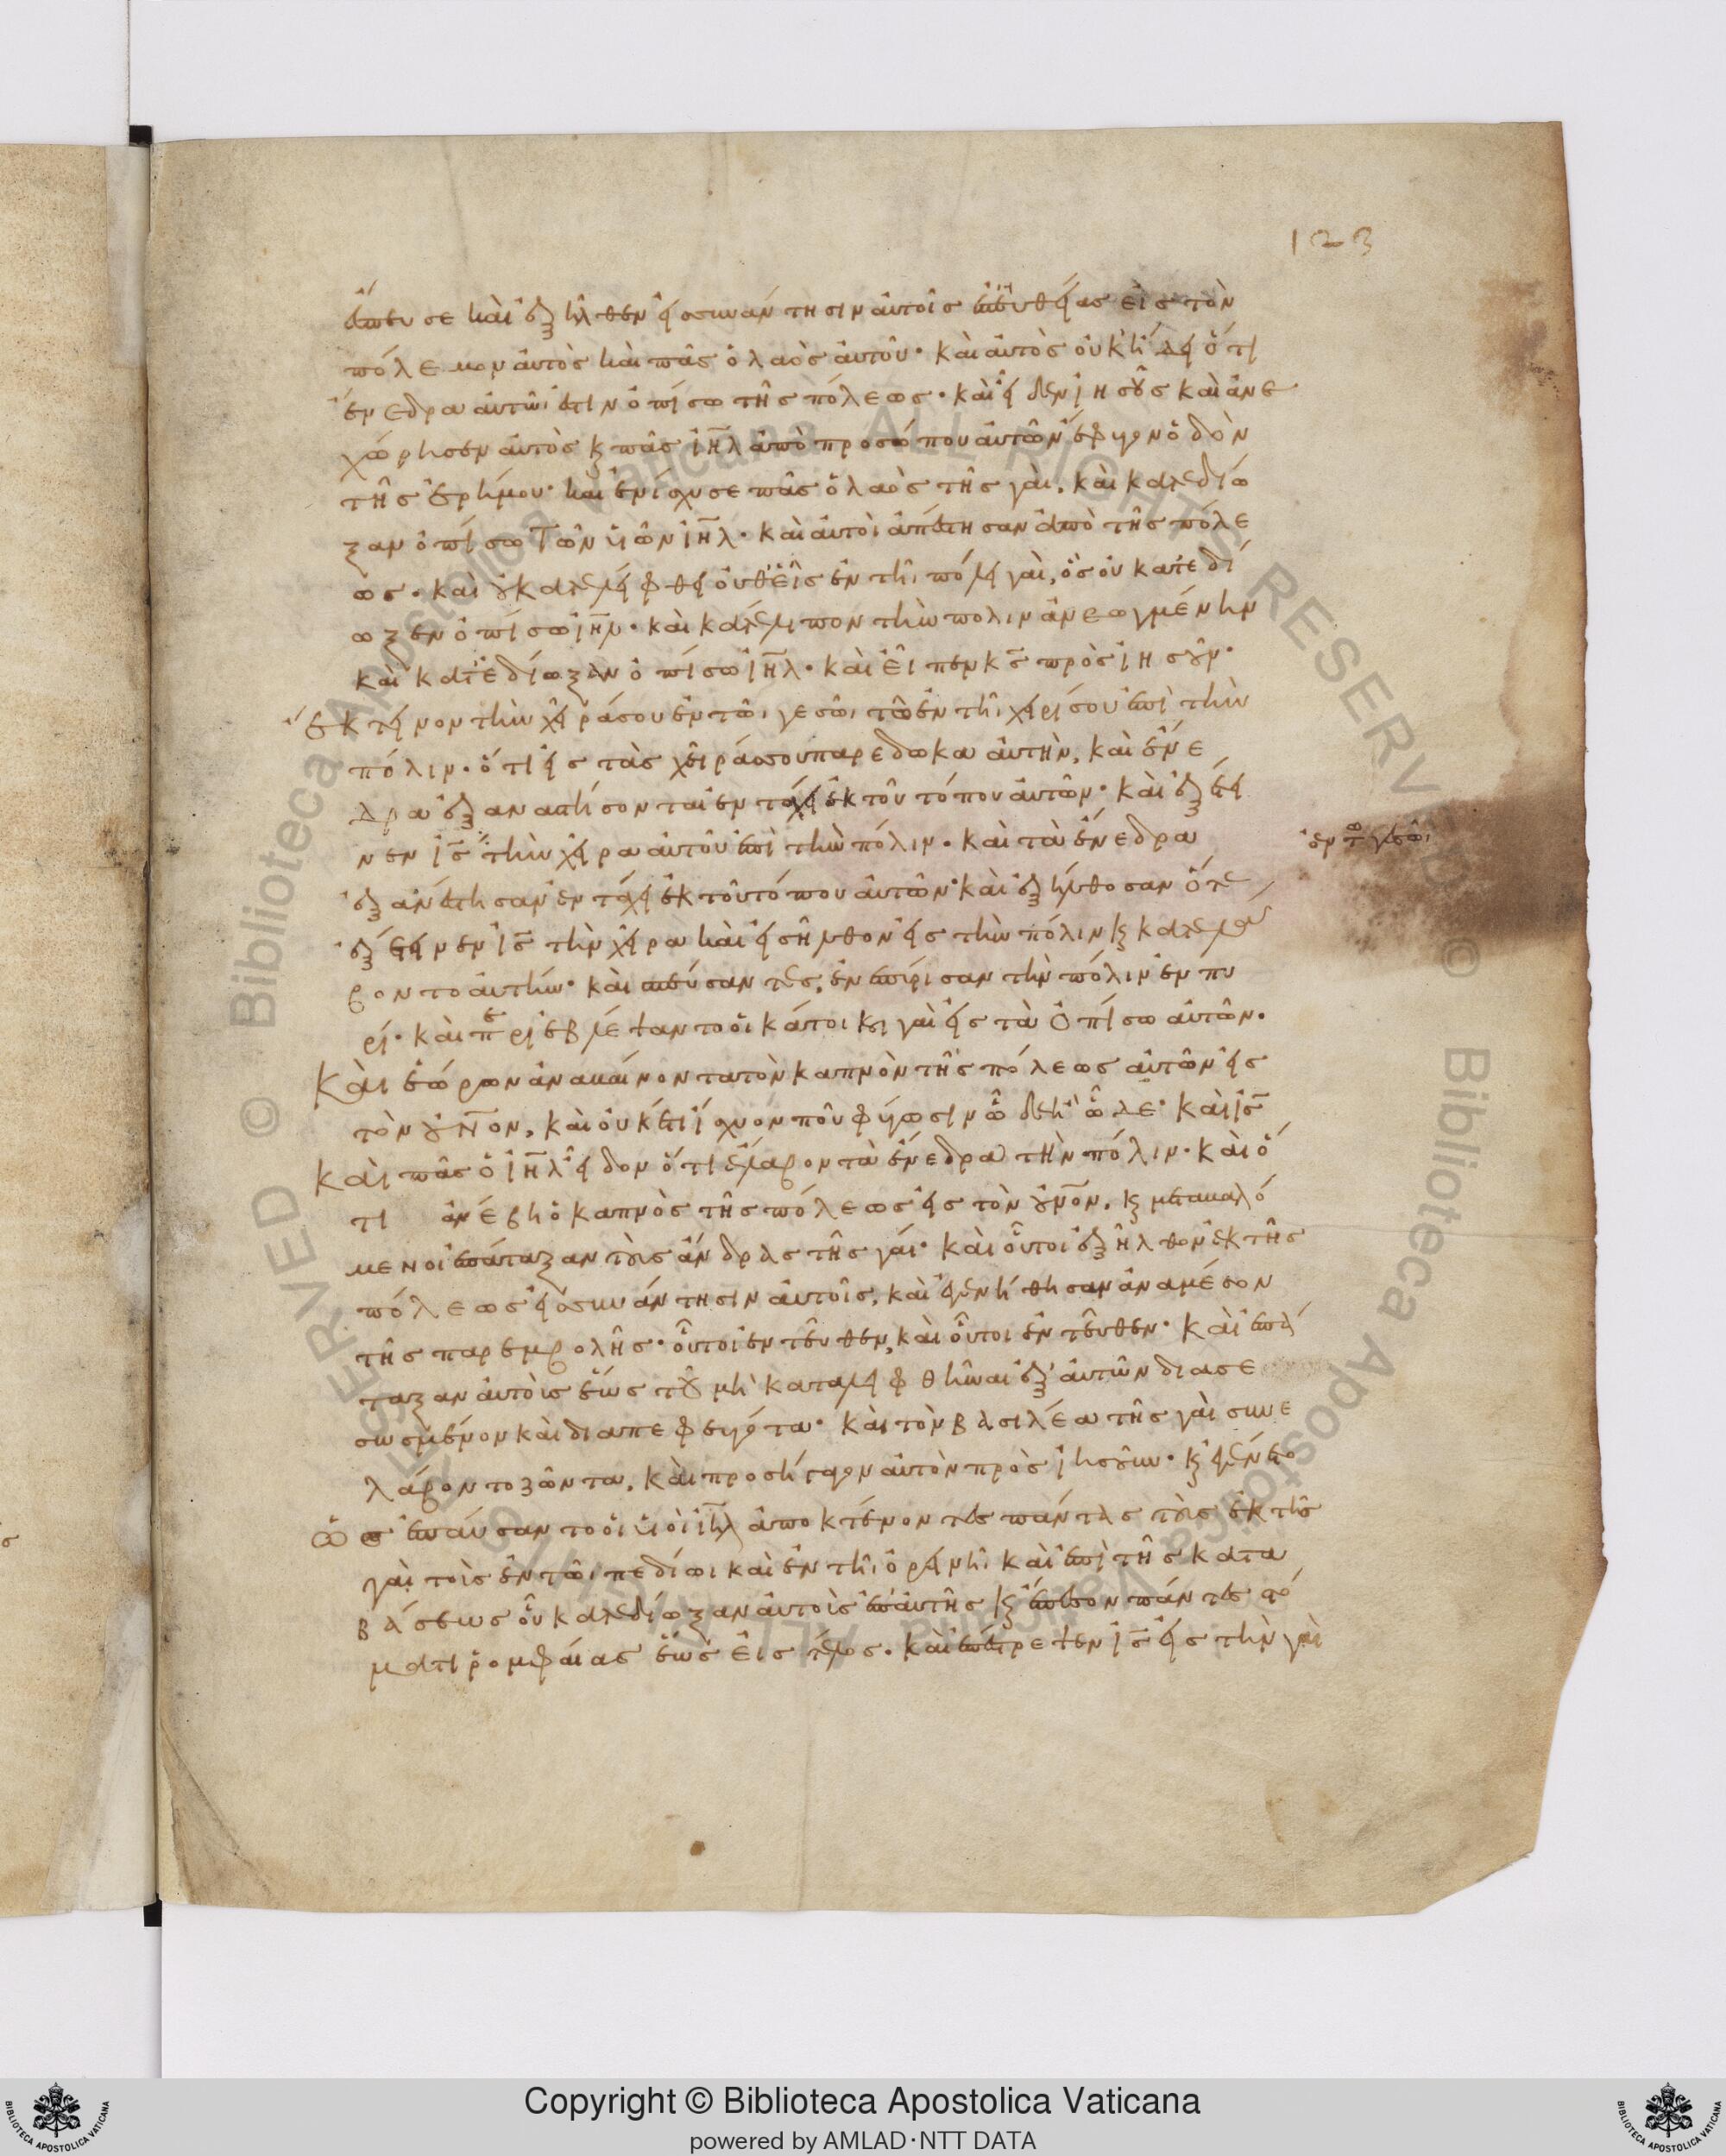 123
ἔσπευσε καὶ ἐξῆλθεν εἰς συνάντησιν αὐτοῖς ἐπευθείας εἰς τὸν
πόλεμον αὐτὸς καὶ πᾶς ὁ λαὸς αὐτοῦ· καὶ αὐτὸς οὐκ ἤδει ὅτι
ἔνεδρα αὐτῶι ἐστιν ὀπίσω τῆς πόλεως· καὶ εἶδεν ἰησοῦς καὶ ἀνε
χώρησεν αὐτὸς κ πᾶς ιηλ ἀπὸ προσώπου αὐτῶν ἔφυγον ὁδὸν
τῆς ἐρήμου· καὶ ἐνίσχυσε πᾶς ὁ λαὸς τῆς γαὶ, καὶ κατεδίω
ξαν ὀπίσω τῶν υἱῶν ιηλ· καὶ αὐτοὶ ἀπέστησαν ἀπὸ τῆς πόλε
ως· καὶ οὐ κατελείφθη οὐθεὶς ἐν τῆι πόλει γαὶ, ὃς οὐ κατεδί
ωξεν ὀπίσω ιηλ· καὶ κατέλιπον τὴν πόλιν ἀνεωγμένην
καὶ κατεδίωξαν ὀπίσω ιηλ· καὶ εἶπεν κς πρὸς ἰησοῦν·
ἔκτεινον τὴν χεῖρά σου ἐν τῶι γεσῶι τῶ ἐν τῆι χειρί σου ἐπὶ τὴν
πόλιν· ὅτι εἰς τὰς χεῖράς σου παρέδωκα αὐτὴν, καὶ ἔνε
δρα ἐξαναστήσονται ἐν τάχει ἐκ τοῦ τόπου αὐτῶν· καὶ ἐξέτει
νεν ις τὴν χεῖρα αὐτοῦ ἐπὶ τὴν πόλιν· καὶ τὰ ἔνεδρα
ἐν τῶ γεσῶι
ἐξανέστησαν ἐν τάχει ἐκ τοῦ τόπου αὐτῶν· καὶ ἐξήλθοσαν ὅτε
ἐξέτεινεν ις τὴν χεῖρα καὶ εἰσῆλθον εἰς τὴν πόλιν κ κατελά
βοντο αὐτήν· καὶ σπεύσαντες, ἐνέπρισαν τὴν πόλιν ἐν πυ
ρί· καὶ περιεβλέψαντο οἱ κάτοικοι γαὶ εἰς τὰ ὀπίσω αὐτῶν.
Καὶ ἑώρων ἀναβαίνοντα τὸν καπνὸν τῆς πόλεως αὐτῶν εἰς
τὸν οὐνον, καὶ οὐκέτι ἴσχυον ποῦ φύγωσιν ὧδε ἢ ὧδε· καὶ ις
Καὶ πᾶς ὁ ιηλ εἶδον ὅτι ἔλαβον τὰ ἔνεδρα τὴν πόλιν· καὶ ὅ
τι ἀνέβη ὁ καπνὸς τῆς πόλεως εἰς τὸν οὐνον, κ μεταβαλό
μενοι ἐπάταξαν τοὺς ἄνδρας τῆς γαί· καὶ οὗτοι ἐξῆλθον ἐκ τῆς
πόλεως εἰς συνάντησιν αὐτοῖς, καὶ ἐγενήθησαν ἀναμέσον
τῆς παρεμβολῆς· οὗτοι ἐντεῦθεν, καὶ οὗτοι ἐντεῦθεν· καὶ ἐπά
ταξαν αὐτοὺς ἕως τοῦ μὴ καταλειφθῆναι ἐξ αὐτῶν διασε
σωσμένον καὶ διαπεφευγότα· καὶ τὸν βασιλέα τῆς γαὶ συνε
λάβοντο ζῶντα, καὶ προσήγαγον αὐτὸν πρὸς ἰησοῦν· κ ἐγένετο
ὡς ἐπαύσαντο οἱ υἱοὶ ιηλ ἀποκτένοντες πάντας τοὺς ἐκ τῆς
γαὶ τοὺς ἐν τῶι πεδίωι καὶ ἐν τῆι ὀρεινῆι καὶ ἐπὶ τῆς κατα
βάσεως οὗ κατεδίωξαν αὐτοὺς ἐπ' αὐτῆς κ ἔπεσον πάντες στό
ματι ῥομφαίας ἕως εἰς τέλος· καὶ ἐπέστρεψεν ις εἰς τὴν γαὶ
Copyright © Biblioteca Apostolica Vaticana
powered by AMLAD·NTT DATA